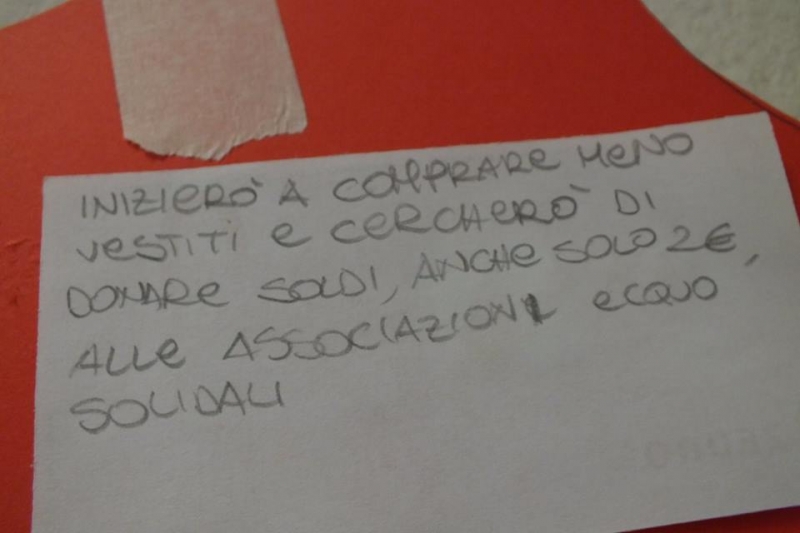 INIZIERÒ A COMPRARE MENO
VESTITI E CERCHERÒ DI
DONARE SOLDI, ANCHE SOLO 2€,
ALLE ASSOCIAZIONI ECQUO
SOLIDALI